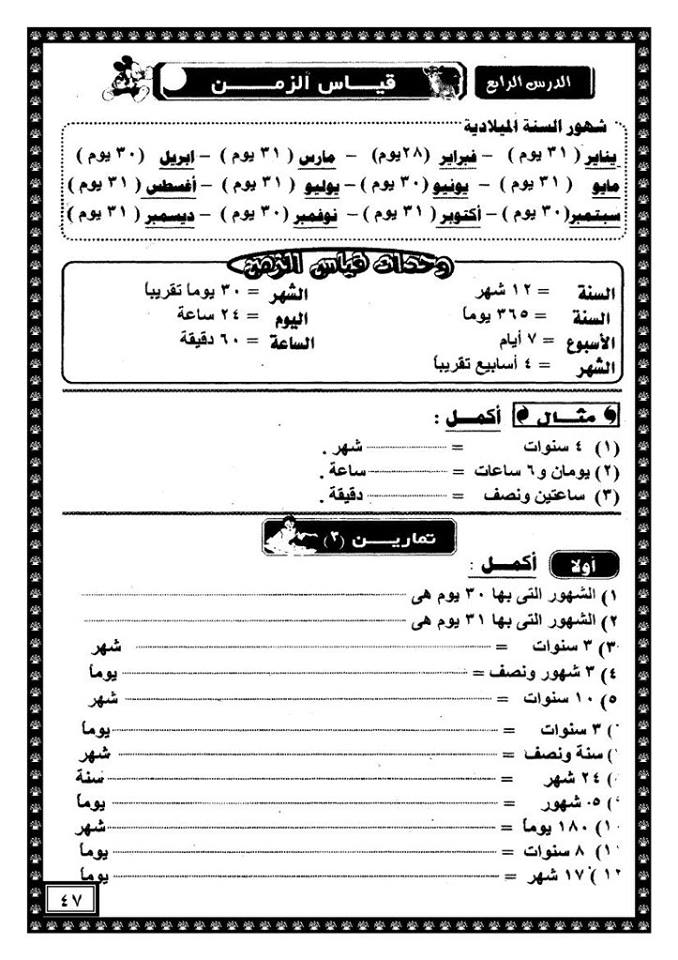 الدرس الرابع
قيـــاس الزمـــــن
شهور السنة الميلادية
يناير ( ٣١ يوم ) – فبراير (٢٨يوم) – مارس ( ٣١ يوم ) – ابريل ( ٣٠ يوم )
مايو ( ٣١ يوم ) – يونيو (٣٠ يوم ) – يوليو ( ٣١ يوم ) – أغسطس ( ٣١ يوم )
سبتمبر(٣٠ يوم ) – أكتوبر ( ٣١ يوم ) – نوفمبر (٣٠ يوم ) – ديسمبر ( ٣١ يوم )
وحدات قياس الزمن
السنة = ١٢ شهر الشهر = ٣٠ يوما تقريباً
السنة = ٣٦٥ يوماً اليوم = ٢٤ ساعة
الأسبوع = ٧ أيام الساعة = ٦٠ دقيقة
الشهر = ٤ أسابيع تقريباً
مثـــال أكمـل :
(١) ٤ سنوات = ........ شهر .
(٢) يومان و٦ ساعات = ........ ساعة .
(٣) ساعتين ونصف = ........ دقيقة .
تماريـــن (٣)
أولا أكمـــل :
١) الشهور التى بها ٣٠ يوم هى ........
٢) الشهور التى بها ٣١ يوم هى ........
٣) ٣ سنوات = ........ شهر
٤) ٣ شهور ونصف = ........ يوماً
٥) ١٠ سنوات = ........ شهر
) ٣ سنوات = ........ يوماً
) سنة ونصف = ........ شهر
) ٢٤ شهر = ........ سنة
) ٥ شهور = ........ يوماً
١٠) ١٨٠ يوماً = ........ شهر
١١) ٨ سنوات = ........ يوماً
١٢) ١٧ شهر = ........ يوماً
٤٧